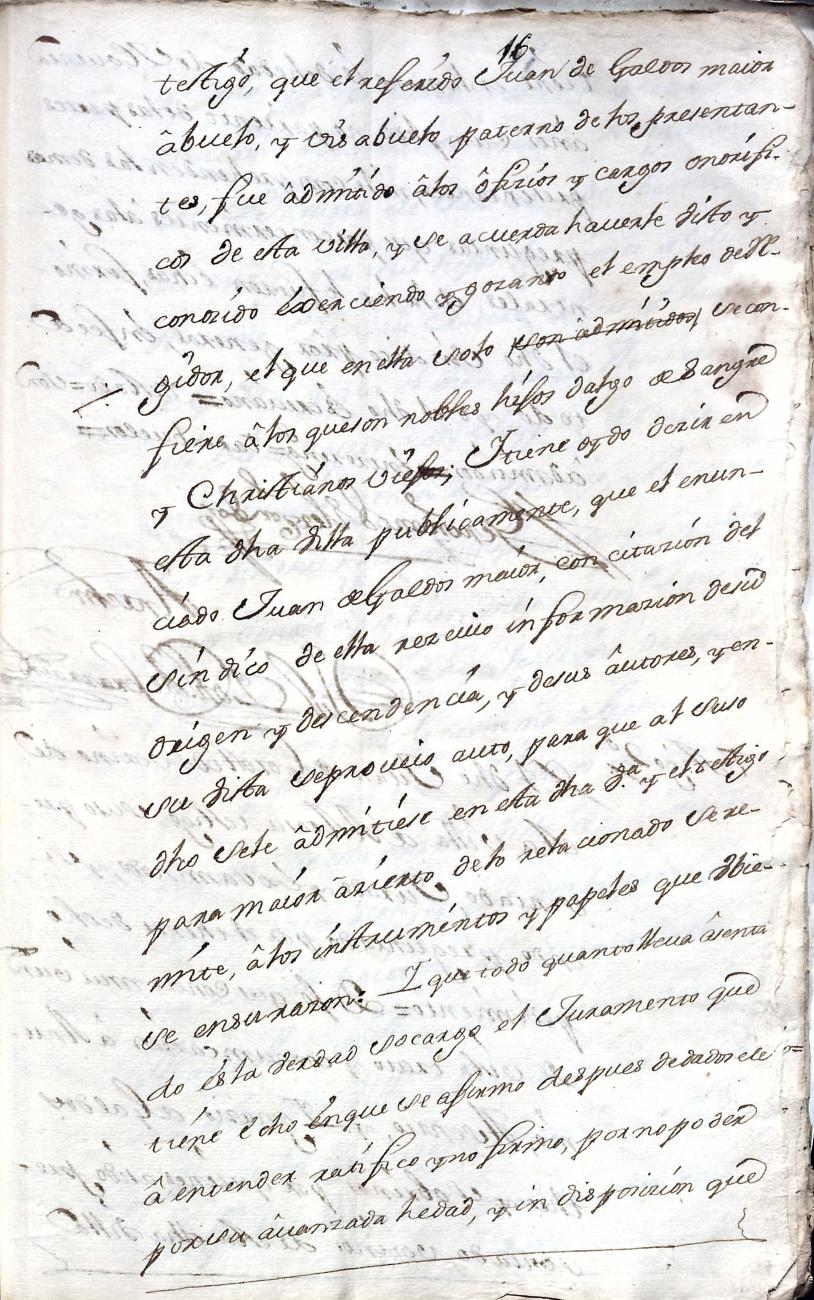 16
testigo, que el referido Juan de Galdos maior
âbuelo, y vis abuelo paterno de los presentan-
tes, fue âdmitido âlos ôfizios y cargos onorifi-
cos de esta villa, y se acuerda haverle visto y
conozido êxerciendo y gozando el empleo de Re-
gidor, el que en ella solo son âdmitidos se con-
fiere âlos que son nobles hijos dalgo de Sangre
y Christianos viejos; I tiene oydo dezir en
esta dha villa publicamente, que el enun-
ciado Juan de Galdos maior, con citazion del
Sindico de ella rezivio informazion de su
orígen y descendencia, y de sus âutores, y en-
su vista se proveio auto, para que al suso
dho se le âdmitiese en esta dha va. y el testigo
para maior âzierto de lo relacionado se re-
mite, âlos instrumentos y papeles que vbie-
se en su razon: I que todo quanto lleva âsenta
do es la verdad so cargo el Juramento que
tiene echo en que se afirmo despues de dadosele =
â entender ratifico y no firmo, por no poder
por su âvanzada hedad, y indisposizion que